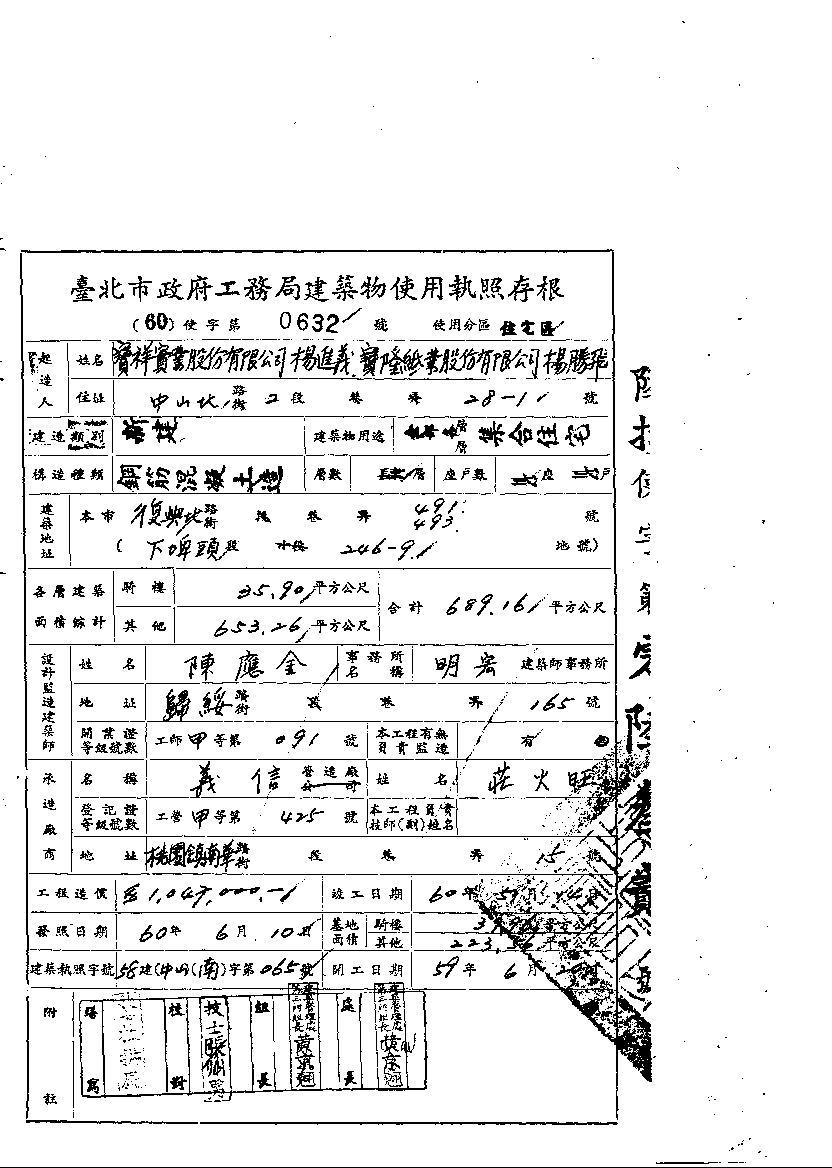 臺北市政府工務局建築物使用執照存根
(60)使字第 0632 號 使用分區 住宅區
起造人 姓名 寶祥實業股份有限公司楊進義.寶隆紙業股份有限公司楊勝飛
住址 中山北路街 2段 巷 弄 28-1 號
建造類別 新建 建築物用途 集合住宅
構造種類 鋼筋混凝土造 層數 層 座戶數 座 戶
建築地址 本市 復興北路街 段 巷 弄 491. 493. 號
(下埤頭段 小段 246-9 地號)
各層建築面積綜計 騎樓 35.90 平方公尺 合計 689.16 平方公尺
其他 653.26 平方公尺
設計監造建築師 姓名 陳應金 事務所名稱 明宏 建築師事務所
地址 歸綏路街 段 巷 弄 165 號
開業證等級號數 工師甲等第 091 號 本工程有無負責監造 有
承造廠商 名稱 義信 營造廠公司 姓名 莊火旺
登記證等級號數 工營甲等第 425 號 本工程負責技師(副)姓名
地址 桃園鎮南華路街 段 巷 弄 15 號
工程造價 竣工日期 60年 5月
發照日期 60年 6月 10日 基地面積 騎樓 平方公尺
其他 平方公尺
建築執照字號 58建(中山)(南)字第065號 開工日期 59年 6月
附註 繕寫 校對 技士 組長 處長